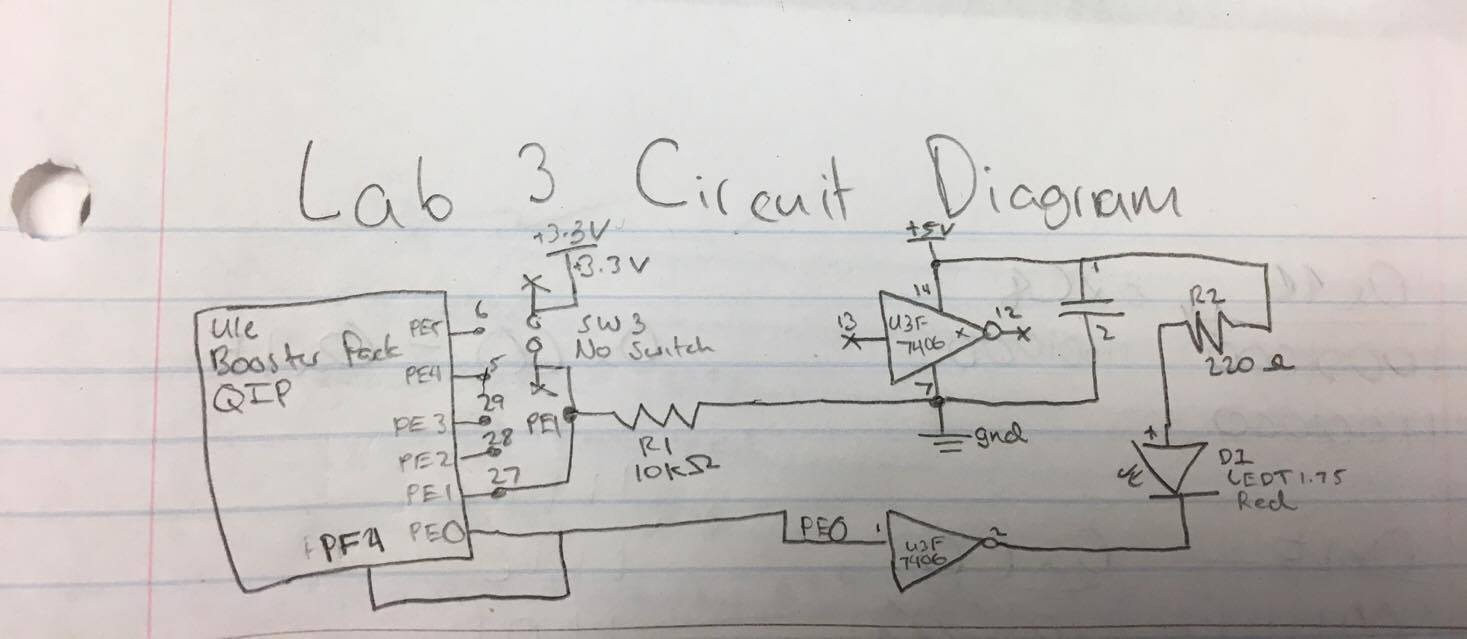 Lab 3 Circuit Diagram
+3.3V
+3.3V
+5V
U1e
Booster Pack
QIP
PE5 6
PE4 5
PE3 29
PE2 28
PE1 27
PE0
PF4
SW3
No Switch
PE1
R1
10kΩ
14
13
U3F
7406
x
12
7
gnd
1
2
R2
220 Ω
+
D1
LEDT1.75
Red
PE0
1
U3F
7406
2